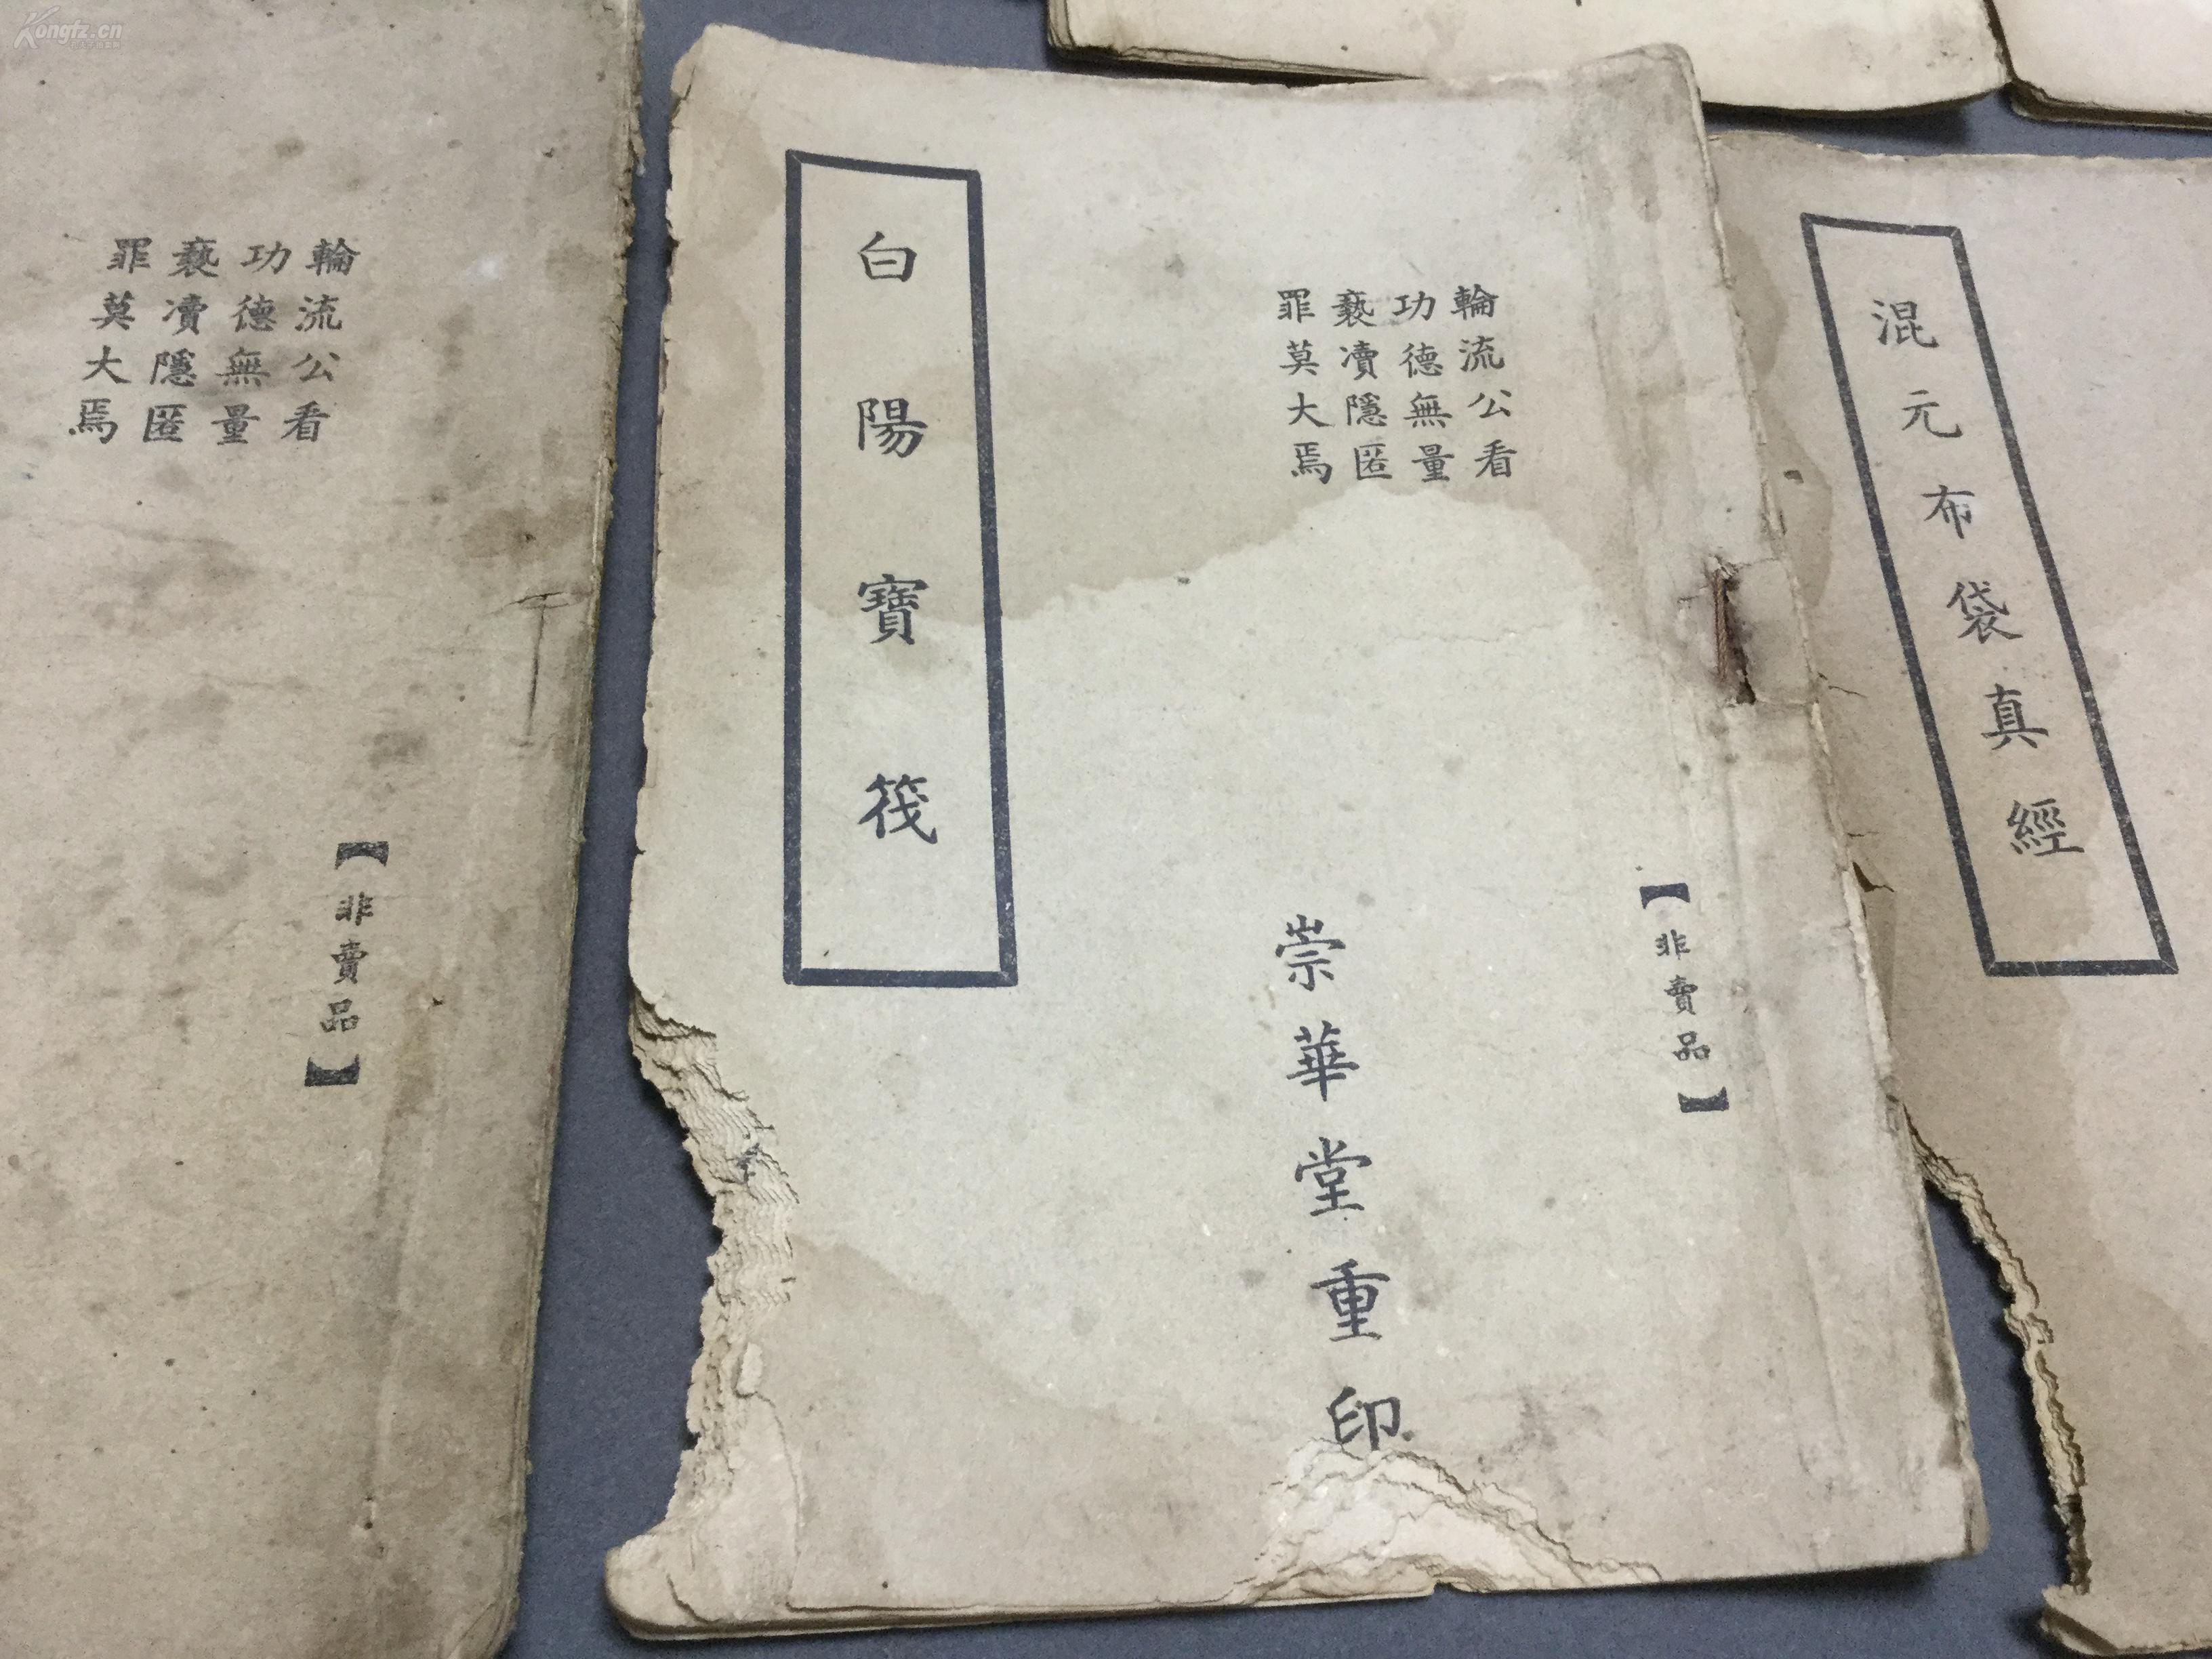 Kongfz.cn
輪流公看
功德無量
褻瀆隱匿
罪莫大焉
【非賣品】
【非賣品】
輪流公看
功德無量
褻瀆隱匿
罪莫大焉
崇華堂重印
白陽寶筏
混元布袋真經